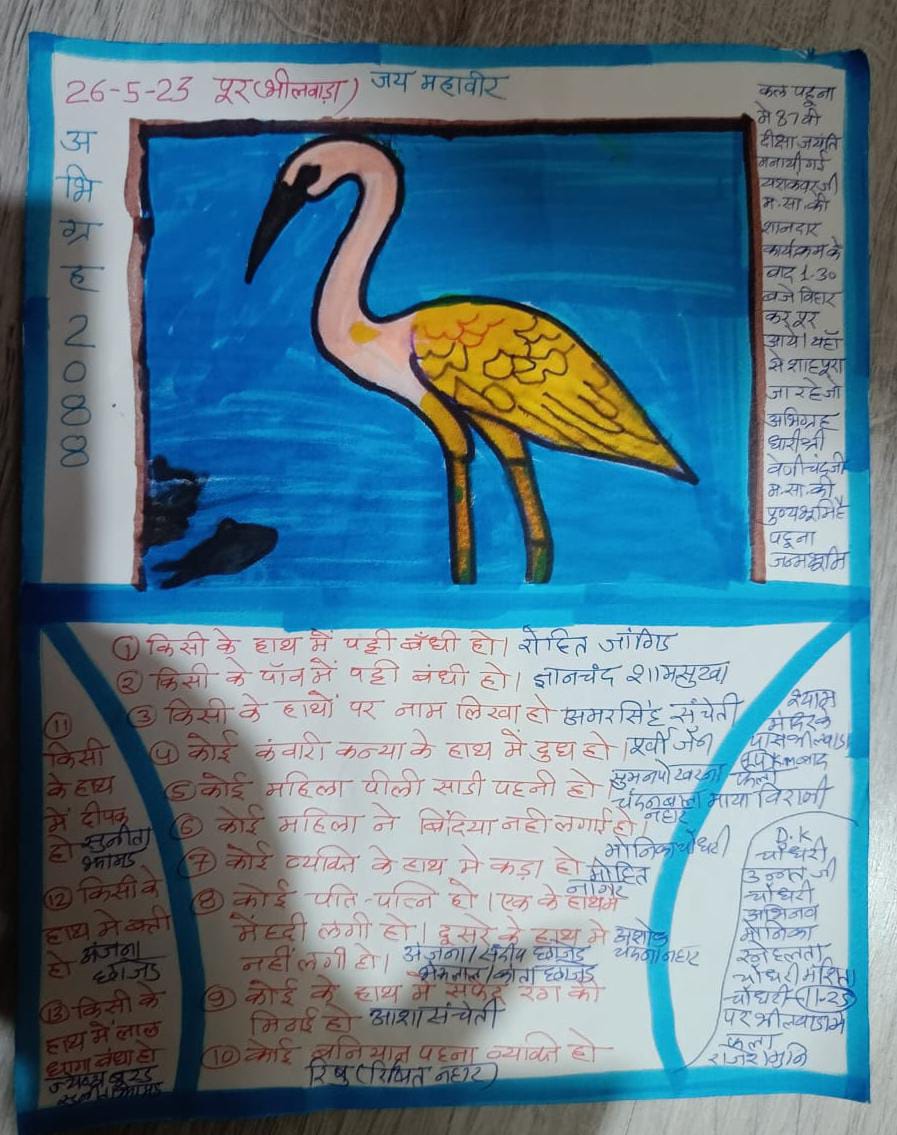 26-5-23 पूर(भीलवाड़ा) जय महावीर
अ
भि
ग्र
ह
2
0
8
8
कल पहूना
मे 87 वी
दीक्षा जयंति
मनायी गई
यशकवरजी
म.सा.की
शानदार
कार्यक्रम के
बाद 1.30
बजे विहार
कर पूर
आये। यहाँ
से शाहपूरा
जा रहे जो
अभिग्रह
धारी श्री
वेणीचंदजी
म.सा.की
पुण्यभूमि है
पहूना
जन्मभूमि
① किसी के हाथ में पट्टी बँधी हो। रोहित जांगिड
② किसी के पाँव में पट्टी बंधी हो। ज्ञानचंद शामसुखा
③ किसी के हाथों पर नाम लिखा हो अमरसिंह संचेती
④ कोई कंवारी कन्या के हाथ में दुध हो। पूर्वी जैन
⑤ कोई महिला पीली साडी पहनी हो। सुमन पोखरना
चंदनबाला नाहर माया विरानी
⑥ कोई महिला ने बिंदिया नही लगाई हो।
मोनिका चौधरी
⑦ कोई व्यक्ति के हाथ मे कड़ा हो मोहित
नागर
⑧ कोई पति-पत्नि हो। एक के हाथमे
मेंहदी लगी हो। दूसरे के हाथ मे अशोक
नहीं लगी हो। अंजना। संदीप छाजेड़
कांता छाजेड़
⑨ कोई के हाथ में सफेद रंग की
मिठाई हो आशा संचेती
⑩ कोई बनियान पहना व्यक्ति हो
रिषु (रिषित नहार)
⑪
किसी
के हाथ
में दीपक
हो सुनीता
झामड
⑫ किसी के
हाथ मे बत्ती
हो अंजना
छाजेड
⑬ किसी के
हाथ में लाल
धागा बंधा हो
श्याम
मंदिर के
पास भीलवाडा
फला
D.K
चौधरी
उन्नत जी
चौधरी
अभिनव
मोनिका
स्नेहलता
चौधरी
चौधरी 11-25
पर भीलवाडामे
फला
राजेश मुनि